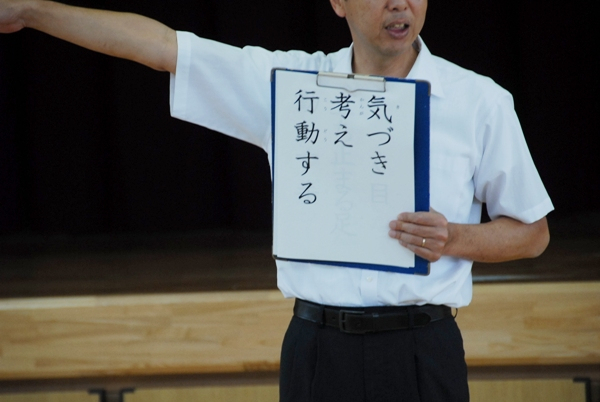 気づき
考え
行動する